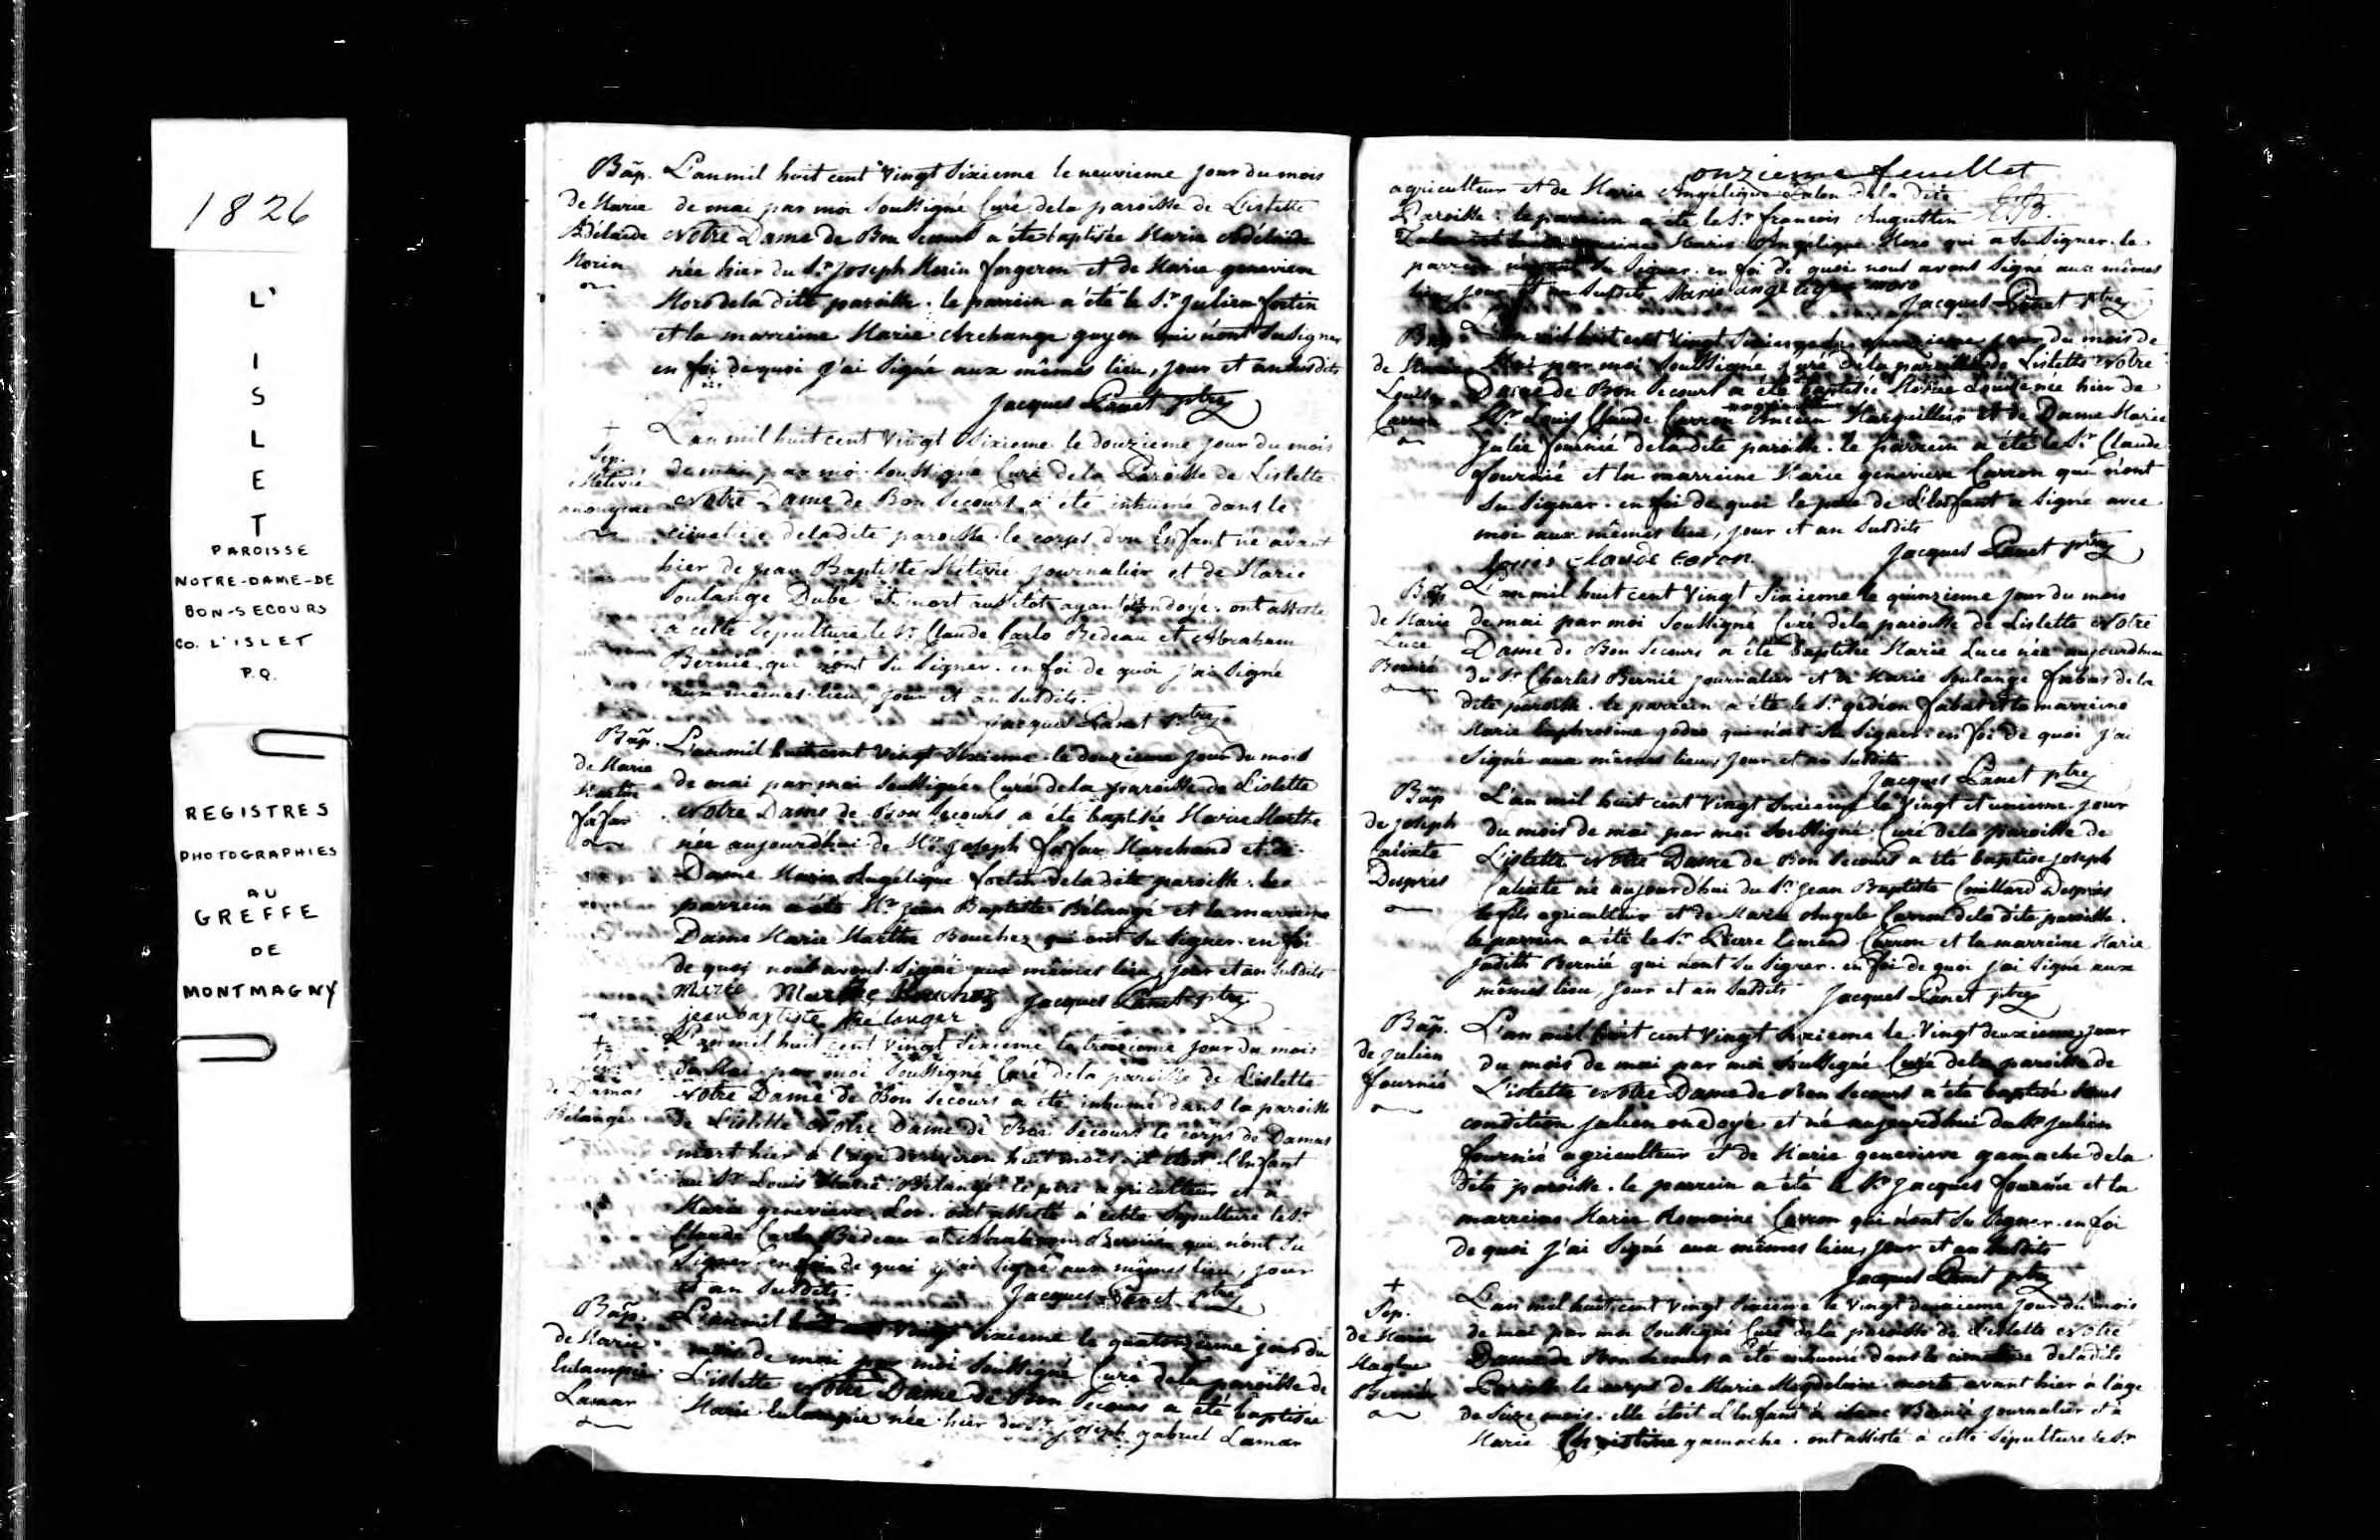 1826
L'
I
S
L
E
T
PAROISSE
NOTRE-DAME-DE
BON-SECOURS
CO. L'ISLET
P.Q.
REGISTRES
PHOTOGRAPHIES
AU
GREFFE
DE
MONTMAGNY
Bãp. L'an mil huit cent Vingt Sixieme le neuvieme jour du mois
de Marie de mai par moi Soussigné Curé de la paroisse de L'islette
Adelaide Notre Dame de Bon Secours a été baptisée Marie Adélaide
Morin née hier du Sr. Joseph Morin forgeron et de Marie genevieve
Moro de la dite paroisse. le parrein a été le Sr. Julien fortin
et la marreine Marie Archange guyon qui n'ont Su Signer
en foi de quoi j'ai Signé aux mêmes lieu, jour et an Susdits
Jacques Panet ptre
+ L'an mil huit cent Vingt Sixieme le douzieme jour du mois
Sep. de mai par moi Soussigné Curé de la Paroisse de L'islette
Métivié Notre Dame de Bon Secours a été inhumé dans le
anonyme cimetiere de la dite paroisse le corps d'un Enfant né avant
hier de Jean Baptiste Métivié journalier et de Marie
Soulange Dubé et mort aussitot ayant été ondoyé. ont assisté
à cette Sépulture le Sr. Claude Carlo Bedeau et Abraham
Bernié qui n'ont Su Signer. en foi de quoi j'ai Signé
aux mêmes lieu, jour et an Susdits.
Jacques Panet ptre
Bãp. L'an mil huit cent Vingt Sixieme le douzieme jour du mois
de Marie de mai par moi Soussigné Curé de la paroisse de L'islette
Marthe Notre Dame de Bon Secours a été baptisée Marie Marthe
fafar née aujourd'hui de Mr. Joseph fafar Marchand et de
Dame Marie Angélique fortin de la dite paroisse. le
parrein a été Mr. Jean Baptiste Bélangé et la marreine
Dame Marie Marthe Bouchez qui ont Su Signer. en foi
de quoi nous avons Signé aux mêmes lieu, jour et an Susdits
Marie Marthe Bouchez Jacques Panet ptre
jean baptiste Bélanger
+ L'an mil huit cent Vingt Sixieme le treizieme jour du mois
de Mai par moi Soussigné Curé de la paroisse de L'islette
de Damas Notre Dame de Bon Secours a été inhumé dans la paroisse
Bélangé de L'islette Notre Dame de Bon Secours le corps de Damas
mort hier à l'age d'environ huit mois. il étoit l'Enfant
du Sr. Louis Marie Bélangé le pere agriculteur et à
Marie genevieve Lor. ont assisté à cette Sépulture le Sr.
Claude Carlo Bedeau et Abraham Bernié qui n'ont Su
Signer. en foi de quoi j'ai Signé aux mêmes lieu, jour
et an Susdits. Jacques Panet ptre
Bãp. L'an mil huit cent Vingt Sixieme le quatorzieme jour du
de Marie mois de mai par moi Soussigné Curé de la paroisse de
Eulampie L'islette Notre Dame de Bon Secours a été baptisée
Lamar Marie Eulampie née hier du Sr. Joseph gabriel Lamar
onzieme feuillet
agriculteur et de Marie Angélique de la dite
Paroisse. le parrein a été le Sr. francois Augustin
Marie Angélique Moro qui a Su Signer. le
parrein Su Signer. en foi de quoi nous avons Signé aux mêmes
lieu, jour et an Susdits Marie angelique moro
Jacques Panet ptre
Bãp L'an mil huit cent Vingt Sixieme jour du mois de
de Marie Mai par moi Soussigné Curé de la paroisse de L'islette Notre
Louise Dame de Bon Secours a été baptisée Marie Louise née hier de
Carron Mr. Louis Claude Carron Ancien Marguillier et de Dame Marie
Julie fournié de la dite paroisse. le parrein a été le Sr. Claude
fournié et la marreine Marie genevieve Carron qui n'ont
Su Signer. en foi de quoi le pere de l'Enfant a Signé avec
moi aux mêmes lieu, jour et an Susdits
Louis Claude Caron. Jacques Panet ptre
Bãp L'an mil huit cent Vingt Sixieme le quinzieme jour du mois
de Marie de mai par moi Soussigné Curé de la paroisse de L'islette Notre
Luce Dame de Bon Secours a été baptisée Marie Luce née aujourd'hui
Bernié du Sr. Charles Bernié journalier et de Marie Soulange fabas de la
dite paroisse. le parrein a été le Sr. gédéon fabas et la marreine
Marie Euphrosine godro qui n'ont Su Signer. en foi de quoi j'ai
Signé aux mêmes lieu, jour et an Susdits
Jacques Panet ptre
Bãp L'an mil huit cent Vingt Sixieme le Vingt et unieme jour
de Joseph du mois de mai par moi Soussigné Curé de la paroisse de
Calixte L'islette Notre Dame de Bon Secours a été baptisé Joseph
Després Calixte né aujourd'hui du Sr. Jean Baptiste Couillard Després
le fils agriculteur et de Marie Angele Carron de la dite paroisse.
le parrein a été le Sr. Pierre Carron et la marreine Marie
Judith Bernié qui n'ont Su Signer. en foi de quoi j'ai Signé aux
mêmes lieu, jour et an Susdits Jacques Panet ptre
Bãp. L'an mil huit cent Vingt Sixieme le Vingt deuxieme jour
de Julien du mois de mai par moi Soussigné Curé de la paroisse de
fournié L'islette Notre Dame de Bon Secours a été baptisé Sous
condition Julien ondoyé et né aujourd'hui du Sr. Julien
fournié agriculteur et de Marie genevieve gamache de la
dite paroisse. le parrein a été le Sr. Jacques fournié et la
marreine Marie Romaine Carron qui n'ont Su Signer. en foi
de quoi j'ai Signé aux mêmes lieu, jour et an Susdits
Jacques Panet ptre
+ L'an mil huit cent Vingt Sixieme le Vingt deuxieme jour du mois
Sep. de mai par moi Soussigné Curé de la paroisse de L'islette Notre
de Marie Dame de Bon Secours a été inhumé dans le cimetiere de la dite
Magdne Paroisse le corps de Marie Magdeleine morte avant hier à l'age
Bernié de Seize mois. elle étoit l'Enfant à Bernié journalier et à
Marie Christine gamache. ont assisté à cette Sépulture le Sr.